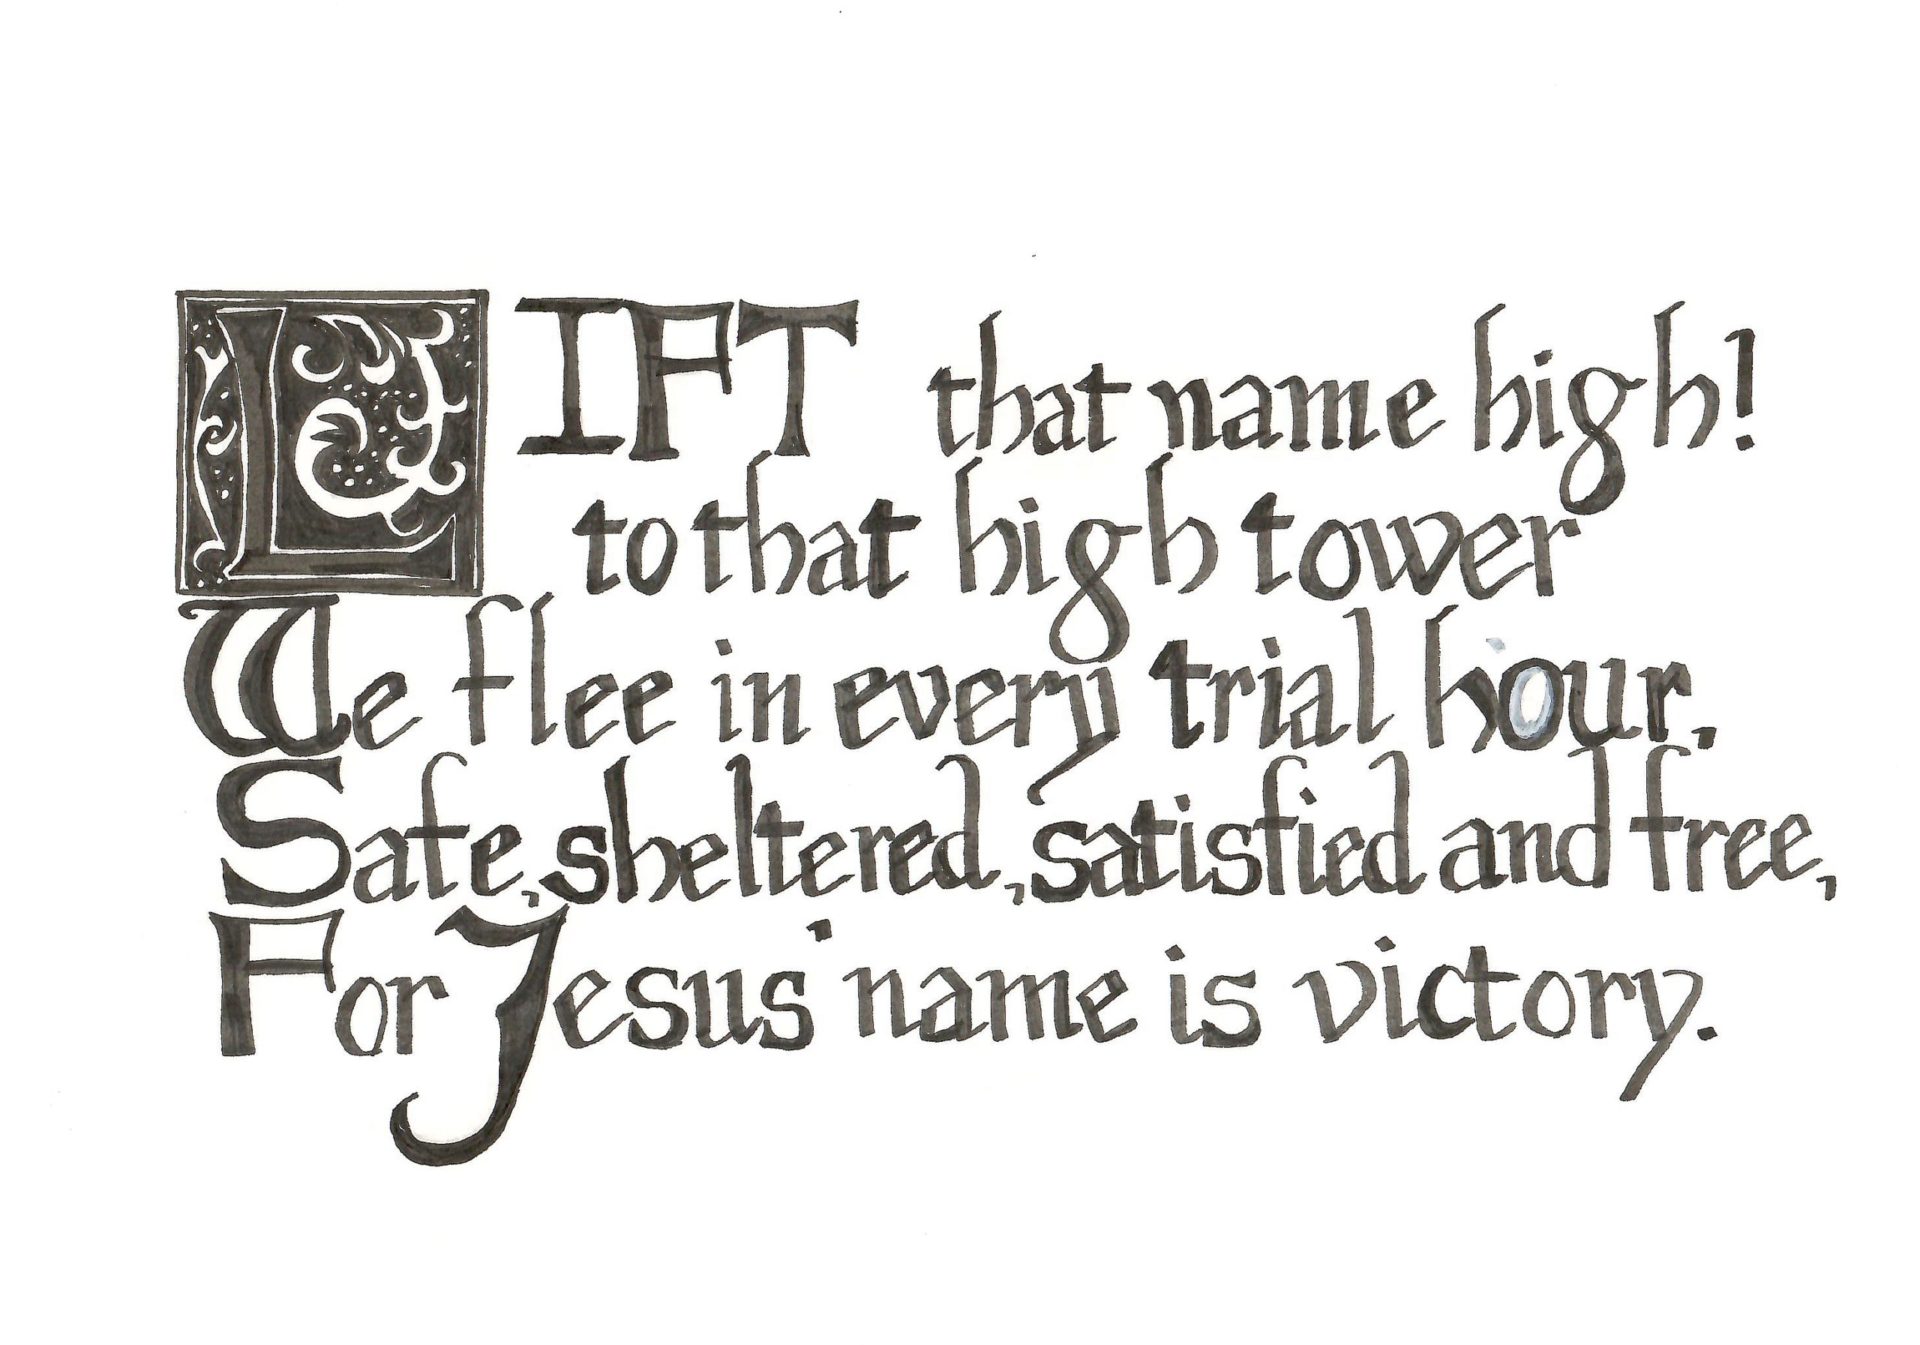 LIFT that name high!
to that high tower
We flee in every trial hour.
Safe, sheltered, satisfied and free,
For Jesus' name is victory.